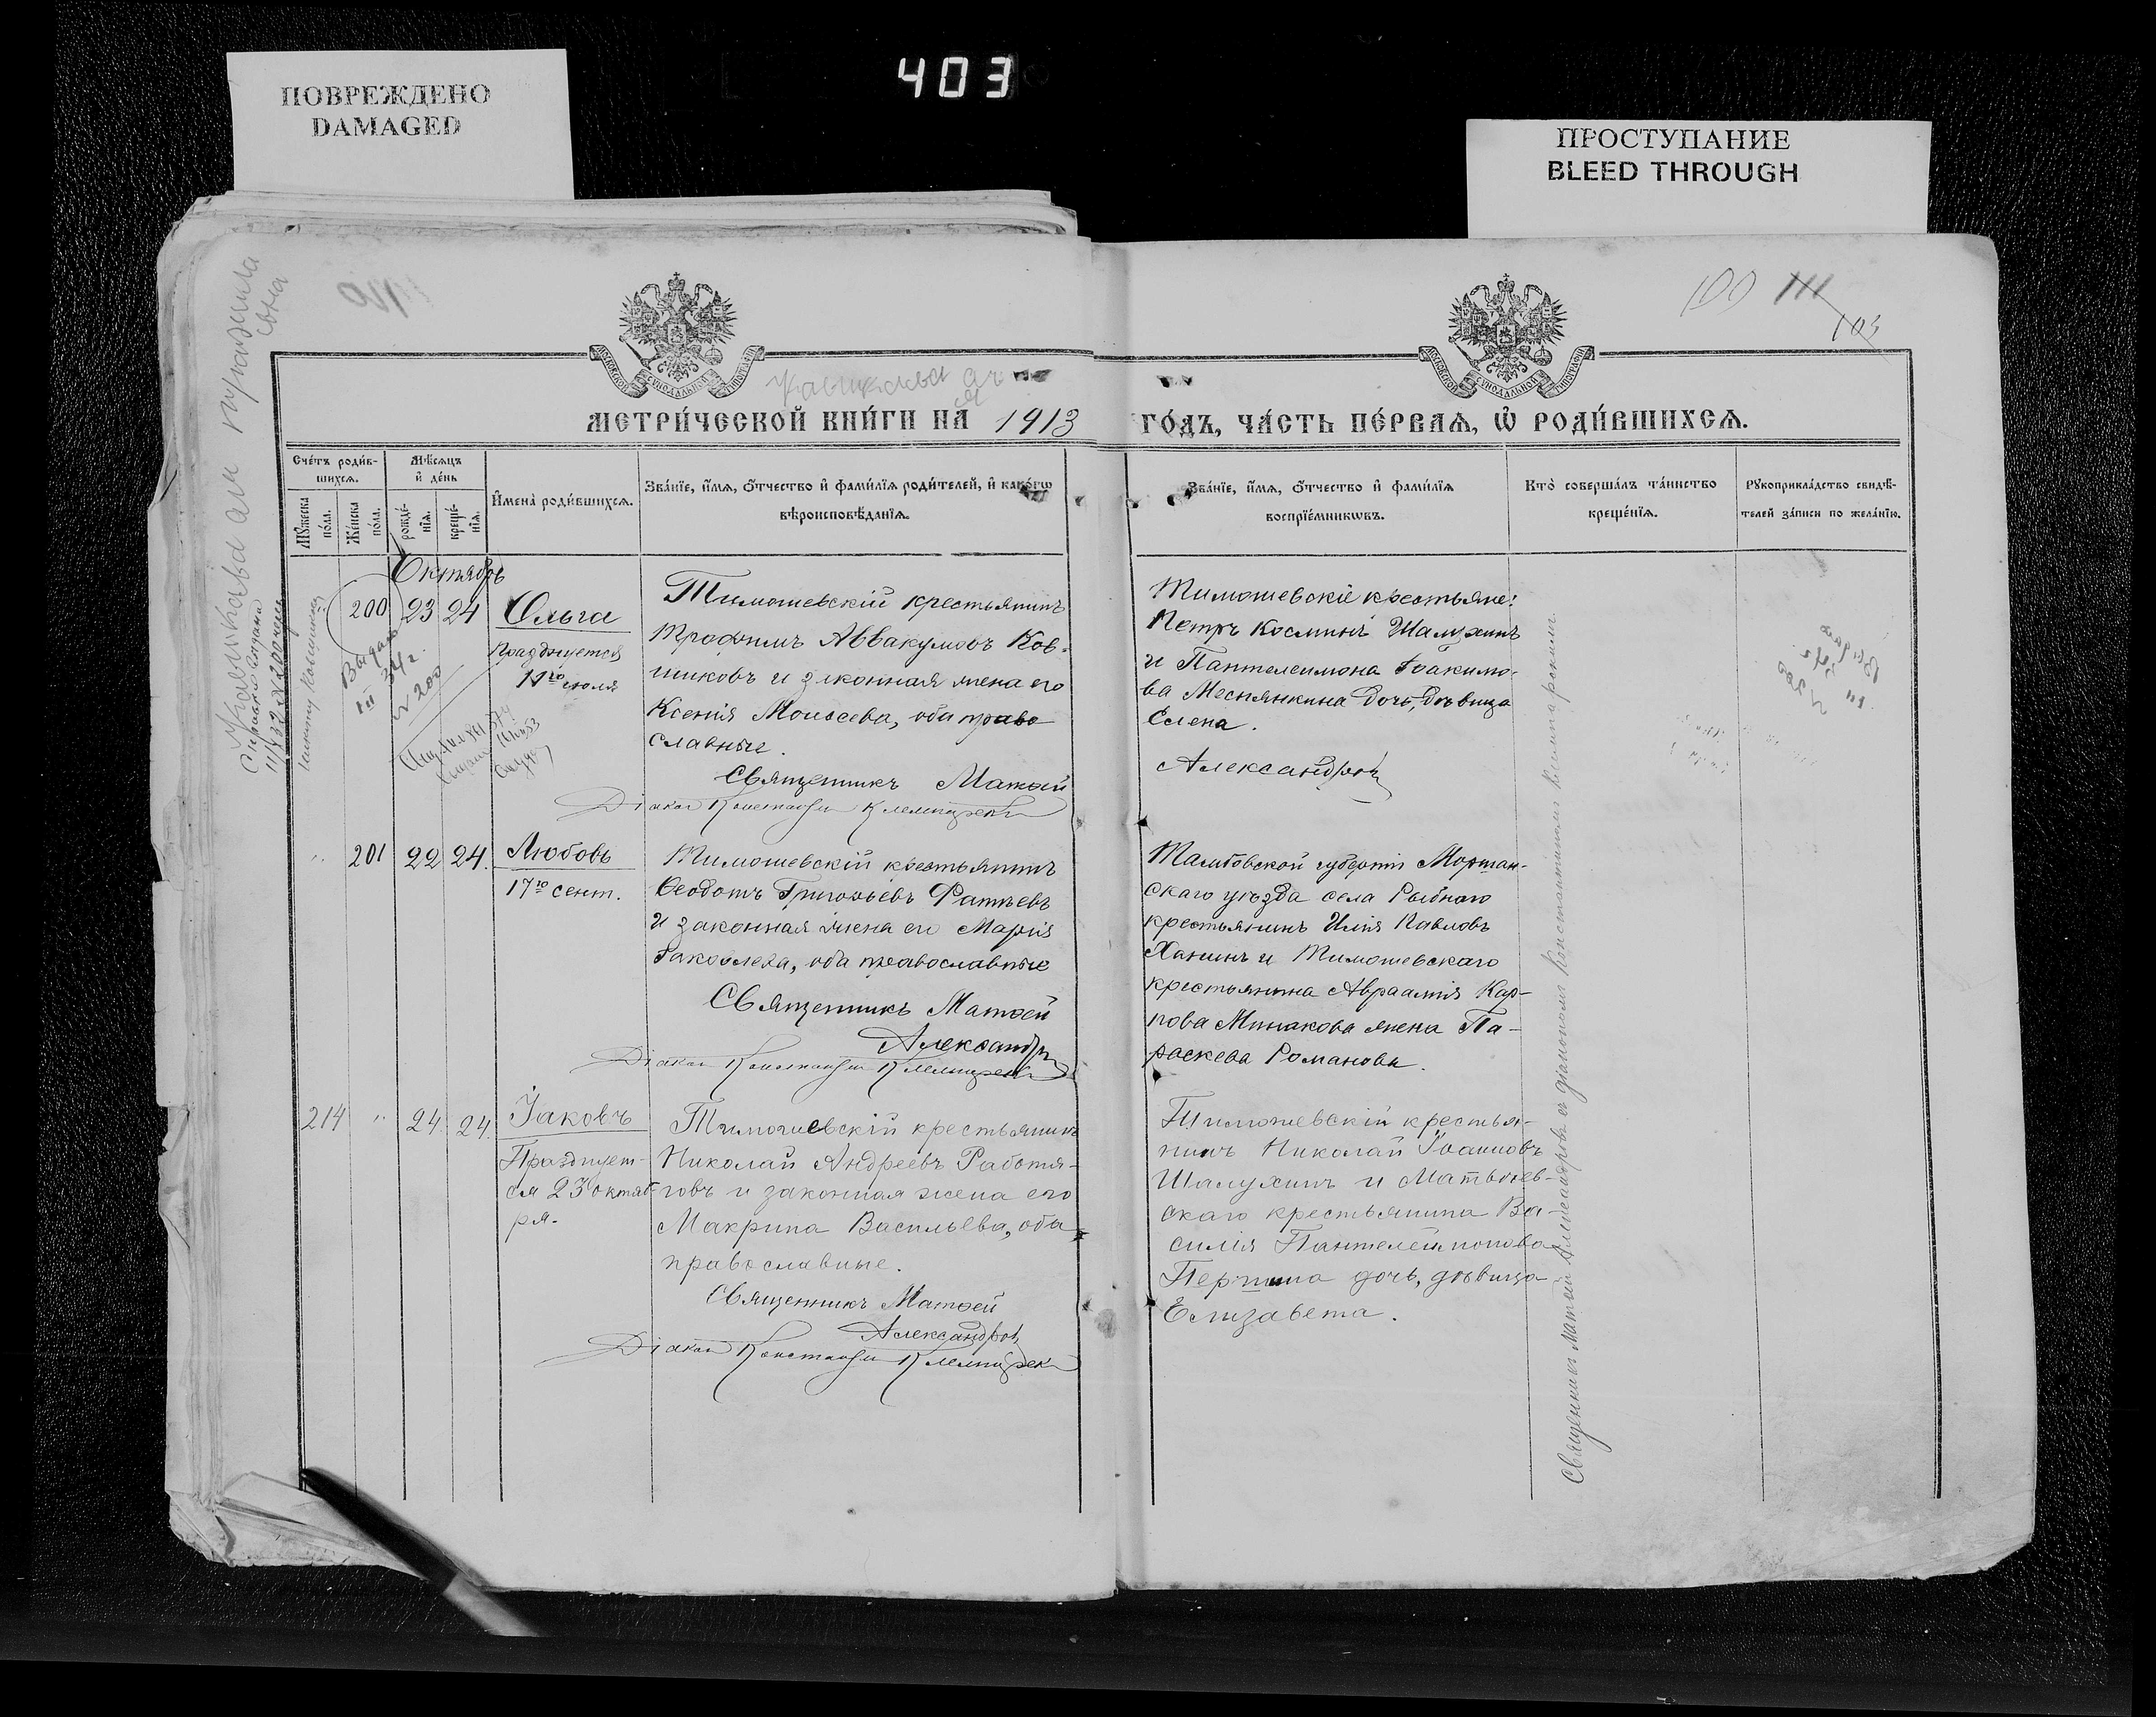 403
ПОВРЕЖДЕНО
DAMAGED
ПРОСТУПАНИЕ
BLEED THROUGH
100 111
103
МЕТРИ́ЧЕСКОЙ КНИ́ГИ НА 1913
ГО́ДЪ, ЧА́СТЬ ПЕ́РВАѦ, Ѽ РОДИ́ВШИХСѦ.
Сче́тъ роди́в-
шихсѧ.
Мꙋ́жеска по́ла.
Же́нска по́ла.
Мѣ́сѧцъ и҆ де́нь
рожде́-
нїѧ.
креще́-
нїѧ.
И҆мена̀ роди́вшихсѧ.
Зва́нїе, и҆́мѧ, ѻ҆́тчество и҆ фами́лїѧ роди́телей, и҆ како́гѡ
вѣроисповѣ́данїѧ.
Зва́нїе, и҆́мѧ, ѻ҆́тчество и҆ фами́лїѧ
воспрїе́мникѡвъ.
Кто̀ соверша́лъ та́инство
креще́нїѧ.
Рꙋкоприкла́дство свидѣ́-
телей за́писи по жела́нїю.
Октябрь
200 23 24 Ольга
Празднуется
11го июля
Тимошевскій крестьянинъ
Трофимъ Аввакумовъ Ков-
шиковъ и законная жена его
Ксенія Моисеева, оба право
славные.
Священникъ Матѳей
Діакон Константин Клемптарскій
Тимошевскіе крестьяне:
Петръ Косминъ Шалухинъ
и Пантелеимона Іоакимо-
ва Меснянкина дочь, дѣвица
Елена.
Александровъ
Выдан
III 34г.
№ 200
" 201 22 24. Любовь
17го сент.
Тимошевскій крестьянинъ
Ѳеодотъ Григорьевъ Фатѣевъ
и законная жена его Марія
Іаковлева, оба православные
Священникъ Матѳей
Александровъ
Діакон Константин Клемптарскій
Тамбовской губерніи Моршан-
скаго уѣзда села Рыбнаго
крестьянинъ Илія Павловъ
Ханинъ и Тимошевскаго
крестьянина Авраамія Кар-
пова Минакова жена Па-
раскева Романова.
214 " 24. 24. Іаковъ
Празднует-
ся 23 октяб-
ря.
Тимошевскій крестьянинъ
Николай Андреевъ Работя-
говъ и законная жена его
Макрина Васильева, оба
православные.
Священникъ Матѳей
Александровъ
Діакон Константин Клемптарскій
Тимошевскій крестья-
нинъ Николай Іоанновъ
Шалухинъ и Матвѣев-
скаго крестьянина Ва-
силія Пантелеимонова
Першина дочь, дѣвица
Елизавета.
Священникъ Матѳей Александровъ съ діакономъ Константиномъ Клемптарскимъ.